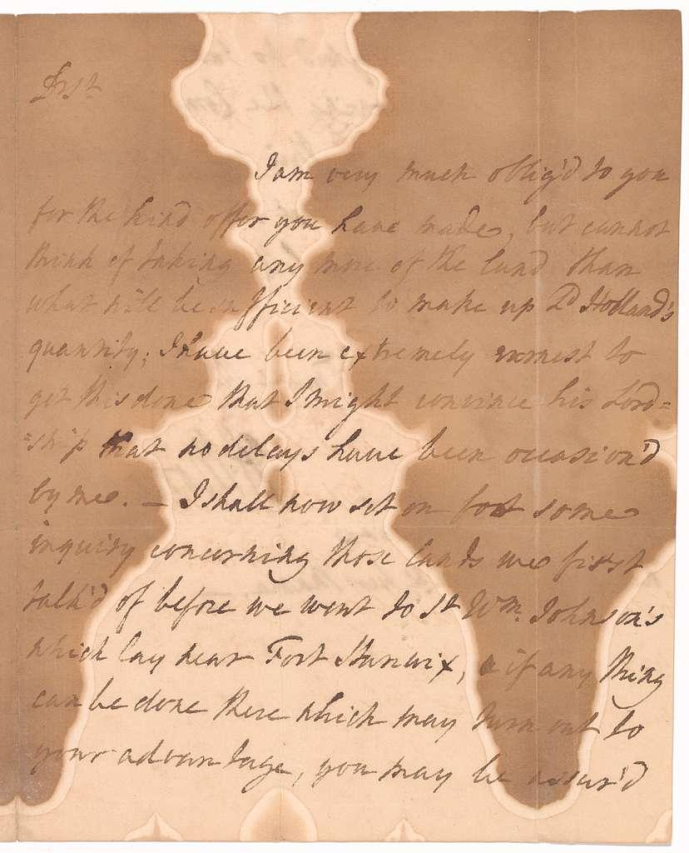 I am very much oblig'd to you
for the kind offer you have made, but cannot
think of taking any more of the land than
what will be sufficient to make up Ld Holland's
quantity; I have been extremely earnest to
get this done that I might convince his Lord=
=ship that no delays have been occasion'd
by me. — I shall now set on foot some
inquiry concerning those lands we first
talk'd of before we went to Sr Wm. Johnson's
which lay near Fort Stanwix, & if any thing
can be done there which may turn out to
your advantage, you may be assur'd